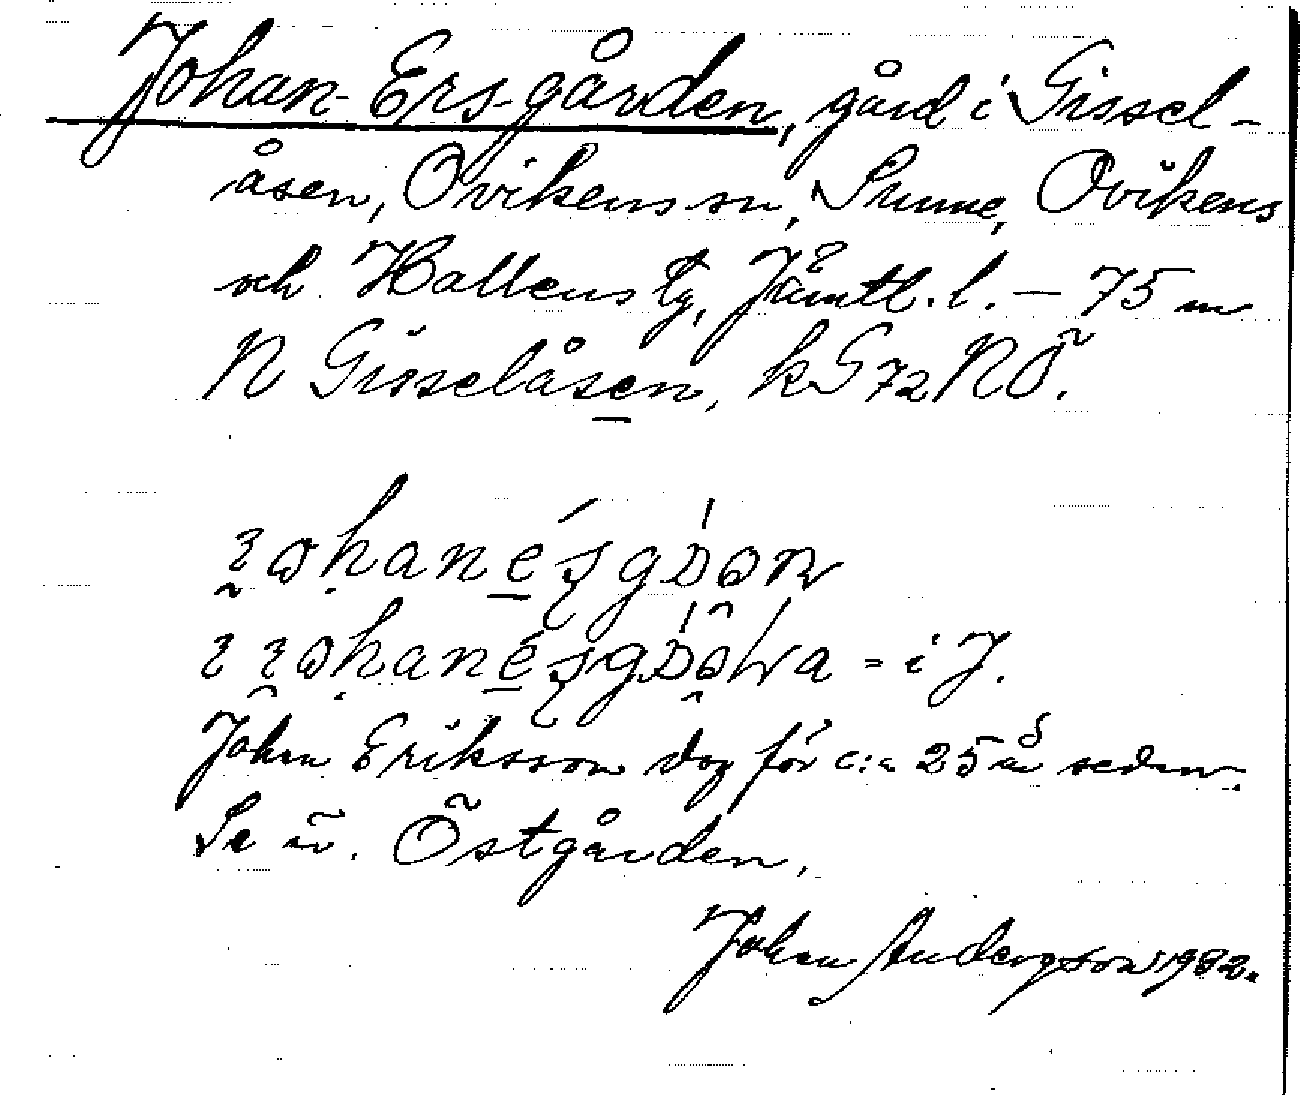 Johan-Ers-gården, gård i Gissel-
åsen, Ovikens sn, Sunne, Ovikens
och Hallens tg, Jämtl. l. — 75 m
N Gisselåsen, kG72NÖ.
John Eriksson dog för c:a 25 år sedan.
Se äv. Östgården.
John Andersson 1982.